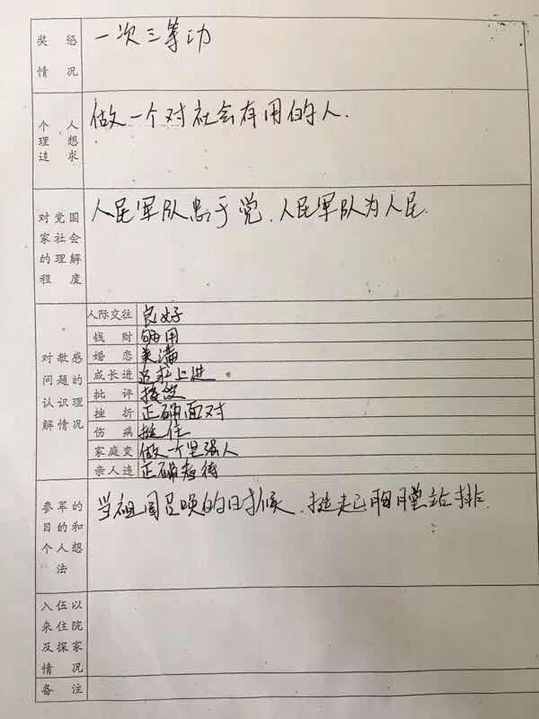 奖惩
情况
一次三等功
个人
理想
追求
做一个对社会有用的人.
对党国
家社会
的理解
程度
人民军队忠于党.人民军队为人民.
对敏感
问题的
认识理
解情况
人际交往 良好
钱财 够用
婚恋 美满
成长进 追求上进
批评 接受
挫折 正确面对
伤病 挺住
家庭变 做一个坚强人
亲人违 正确看待
参军的
目的和
个人想
法
当祖国召唤的时候.挺起胸膛站排
入伍以
来住院
及探家
情况
备注